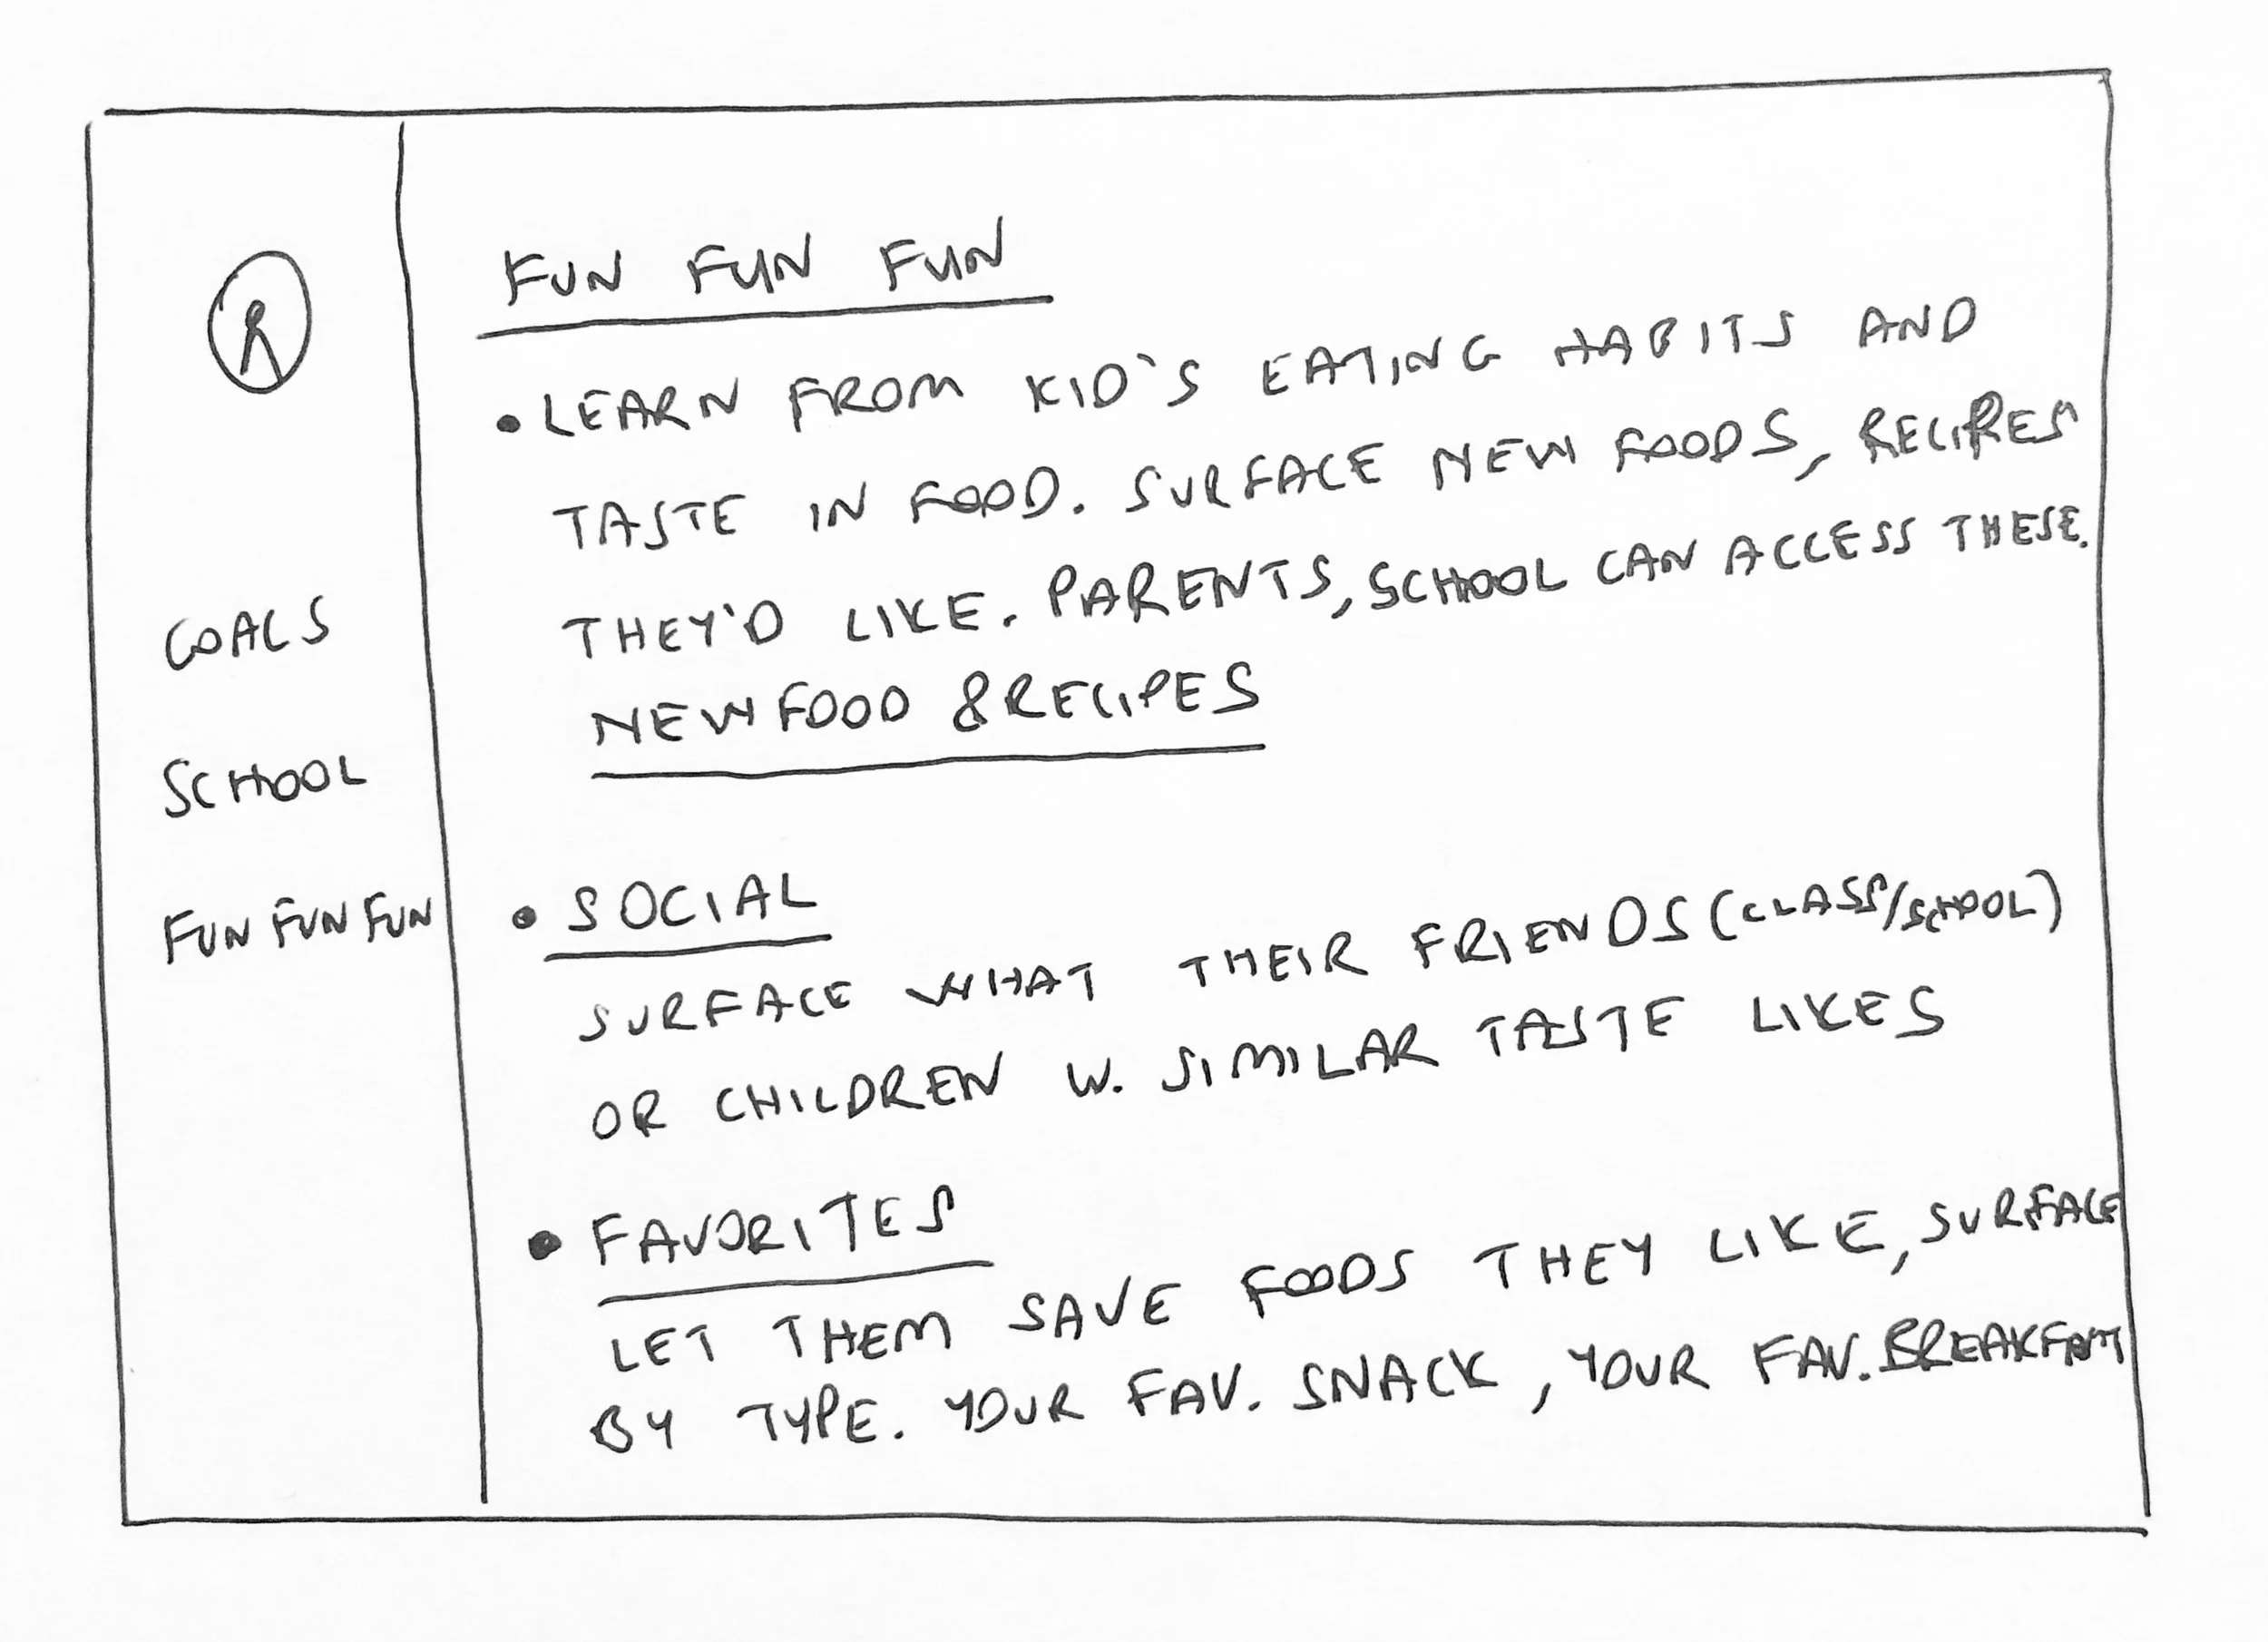 FUN FUN FUN
• LEARN FROM KID'S EATING HABITS AND
TASTE IN FOOD. SURFACE NEW FOODS, RECIPES
THEY'D LIKE. PARENTS, SCHOOL CAN ACCESS THESE.
NEW FOOD & RECIPES
GOALS
SCHOOL
FUN FUN FUN
• SOCIAL
SURFACE WHAT THEIR FRIENDS (CLASS/SCHOOL)
OR CHILDREN W. SIMILAR TASTE LIKES
• FAVORITES
LET THEM SAVE FOODS THEY LIKE, SURFACE
BY TYPE. YOUR FAV. SNACK, YOUR FAV. BREAKFAST